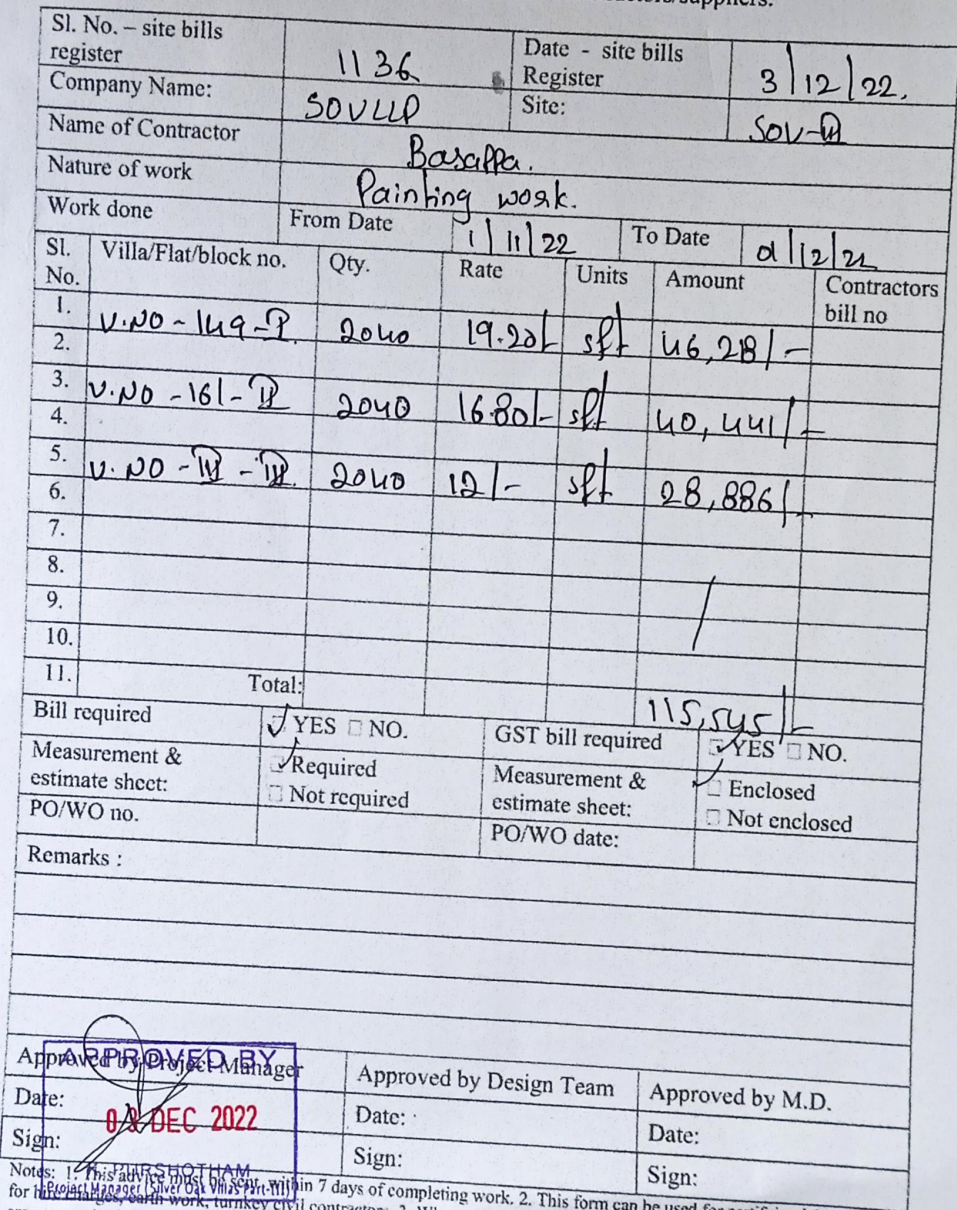 Sl. No. – site bills register 1136 Date - site bills Register 3/12/22.
Company Name: SOVLLP Site: SOV-III
Name of Contractor Basappa.
Nature of work Painting work.
Work done From Date 1/11/22 To Date 2/12/22
Sl. No. Villa/Flat/block no. Qty. Rate Units Amount Contractors bill no
1. V.NO - 149 - 2040 19.20/- sft 46,281/-
2.
3. V.NO - 161 - 2040 16.80/- sft 40,441/-
4.
5. V.NO - 2040 12/- sft 28,886/-
6.
7.
8.
9.
10.
11. Total: 115,545/-
Bill required YES NO. GST bill required YES NO.
Measurement & estimate sheet: Required Not required Measurement & estimate sheet: Enclosed Not enclosed
PO/WO no. PO/WO date:
Remarks :
Approved by Project Manager Approved by Design Team Approved by M.D.
APPROVED BY
Date: Date: Date:
DEC 2022
Sign: Sign: Sign:
PURSHOTHAM
Project Manager (Silver Oak Villas Part-III)
Notes: 1. This advice must be sent within 7 days of completing work. 2. This form can be used for
for hire charges, earth work, turnkey civil